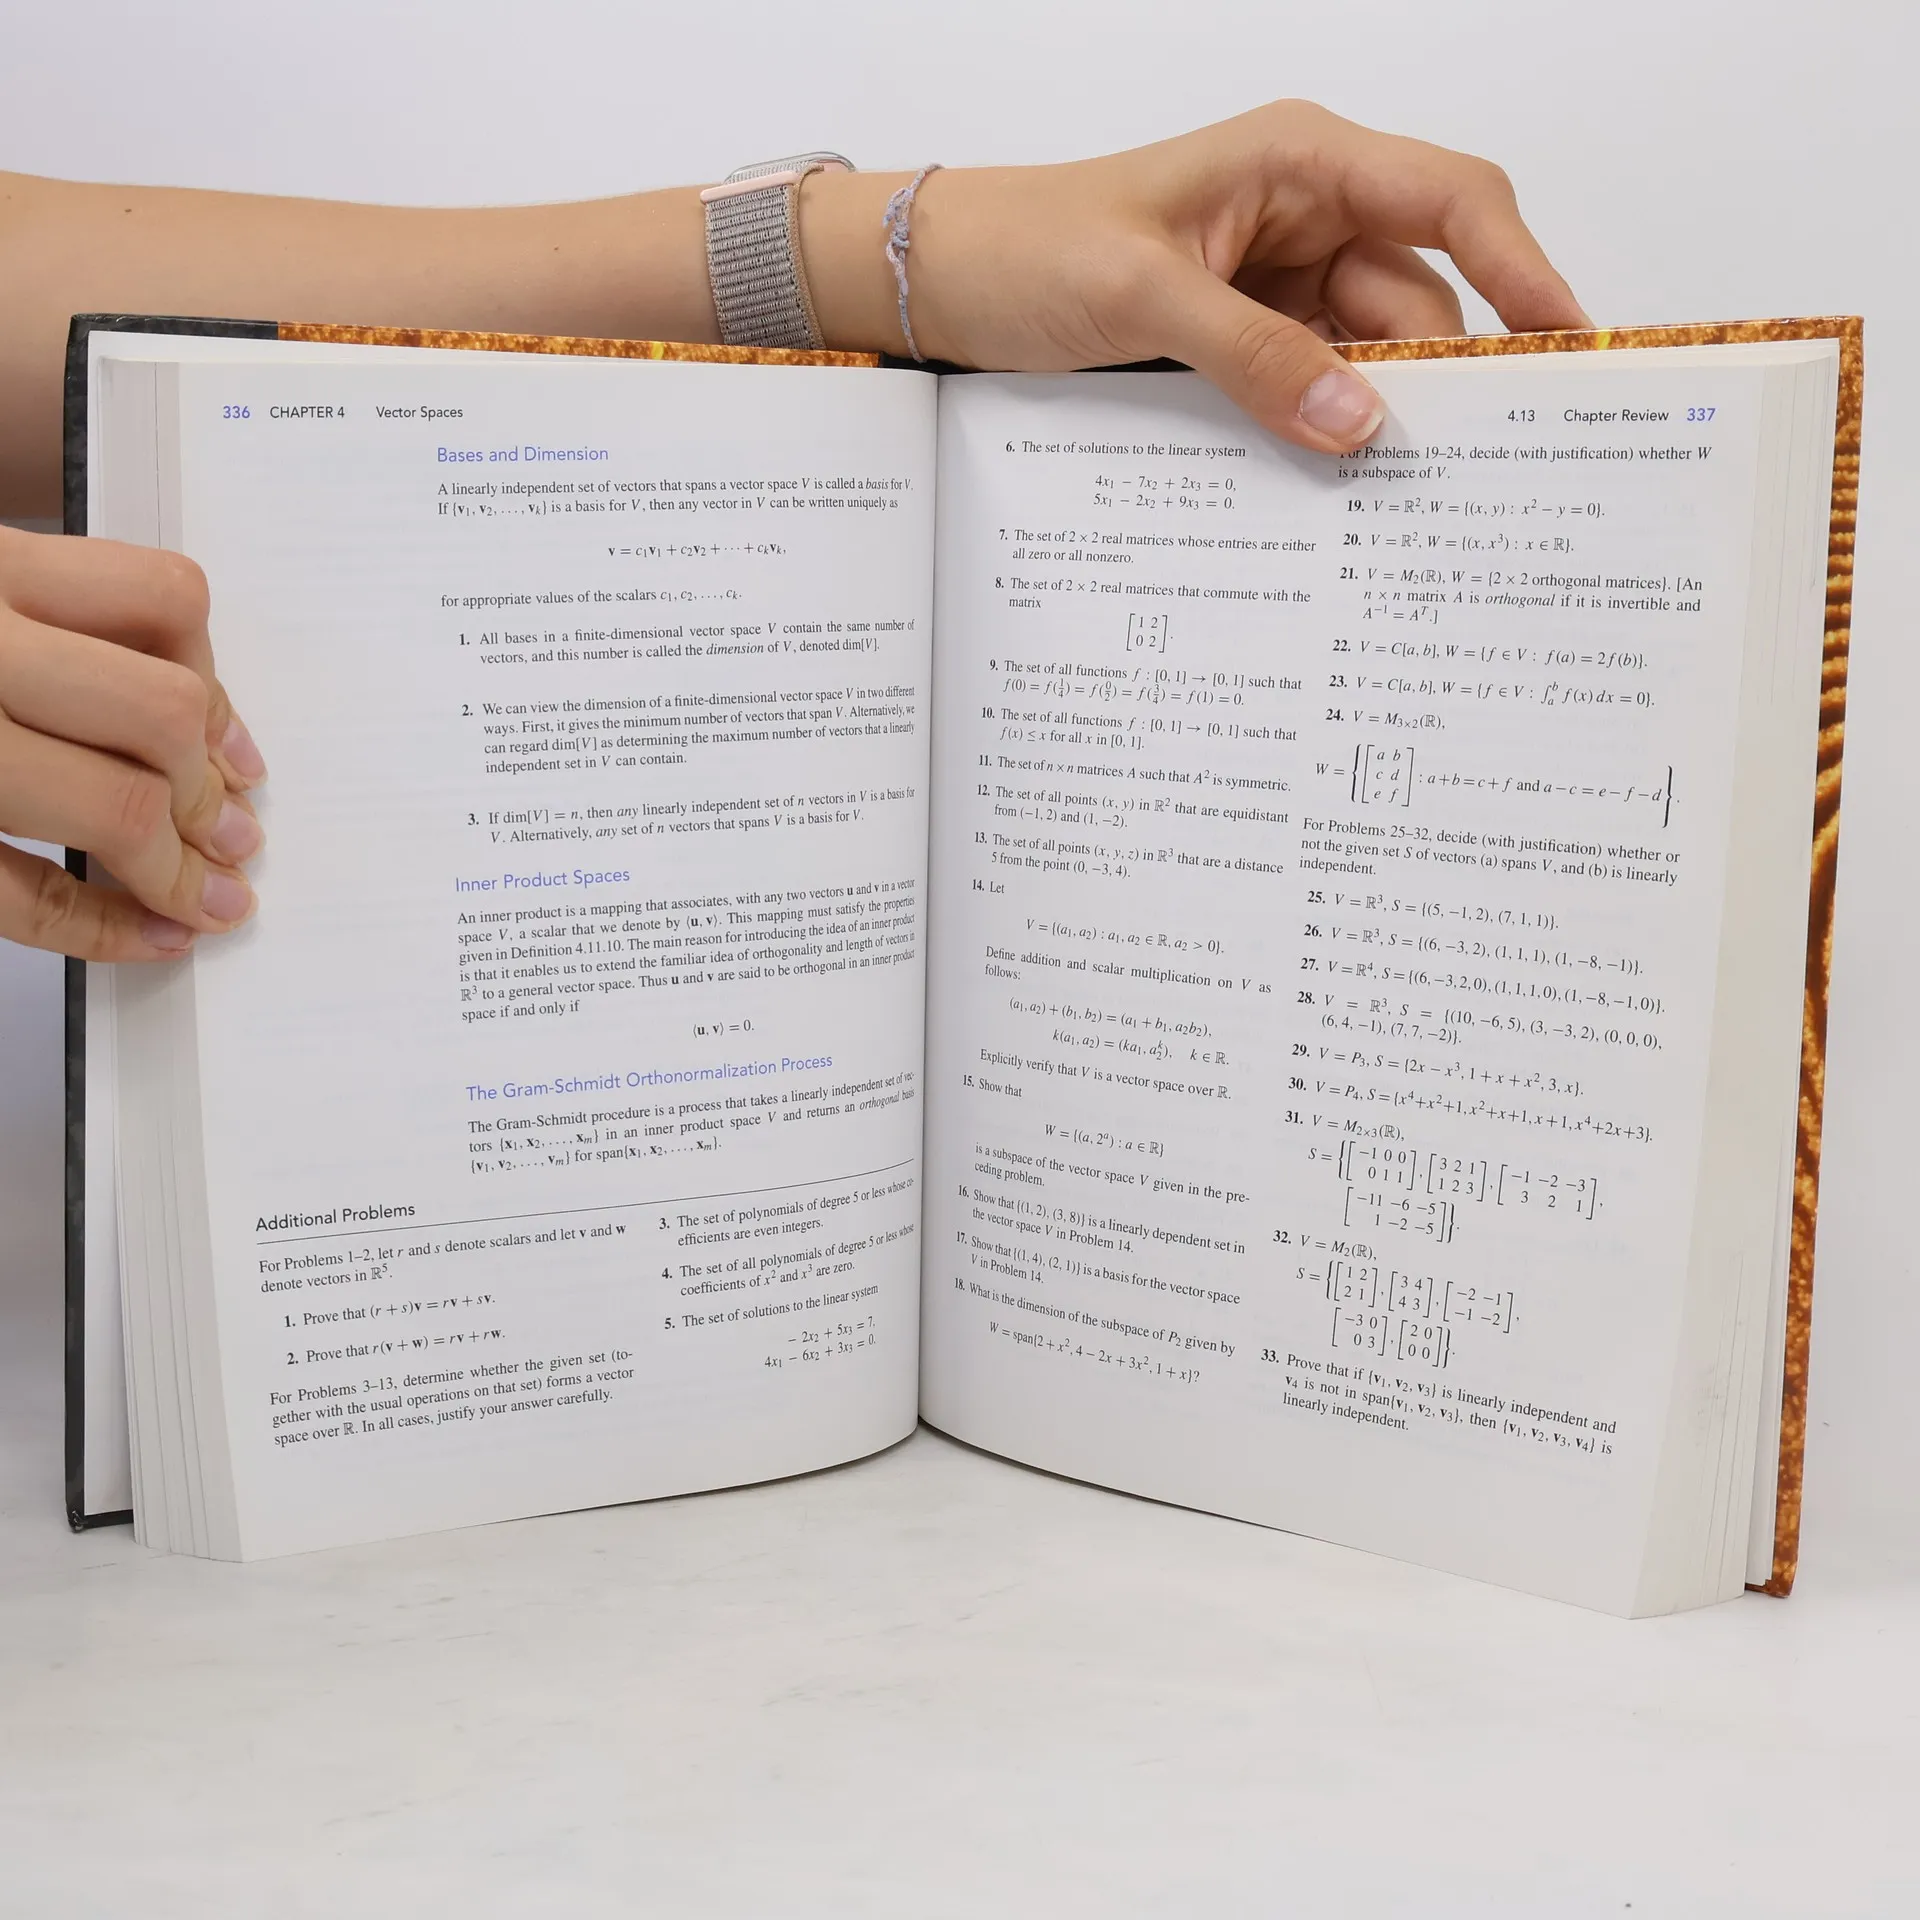 336 CHAPTER 4 Vector Spaces
Bases and Dimension
A linearly independent set of vectors that spans a vector space V is called a basis for V.
If {v1, v2, . . . , vk} is a basis for V, then any vector in V can be written uniquely as
v = c1v1 + c2v2 + · · · + ckvk,
for appropriate values of the scalars c1, c2, . . . , ck.
1. All bases in a finite-dimensional vector space V contain the same number of
vectors, and this number is called the dimension of V, denoted dim[V].
2. We can view the dimension of a finite-dimensional vector space V in two different
ways. First, it gives the minimum number of vectors that span V. Alternatively, we
can regard dim[V] as determining the maximum number of vectors that a linearly
independent set in V can contain.
3. If dim[V] = n, then any linearly independent set of n vectors in V is a basis for
V. Alternatively, any set of n vectors that spans V is a basis for V.
Inner Product Spaces
An inner product is a mapping that associates, with any two vectors u and v in a vector
space V, a scalar that we denote by ⟨u, v⟩. This mapping must satisfy the properties
given in Definition 4.11.10. The main reason for introducing the idea of an inner product
is that it enables us to extend the familiar idea of orthogonality and length of vectors in
ℝ³ to a general vector space. Thus u and v are said to be orthogonal in an inner product
space if and only if
⟨u, v⟩ = 0.
The Gram-Schmidt Orthonormalization Process
The Gram-Schmidt procedure is a process that takes a linearly independent set of vec-
tors {x1, x2, . . . , xm} in an inner product space V and returns an orthogonal basis
{v1, v2, . . . , vm} for span{x1, x2, . . . , xm}.
Additional Problems
For Problems 1–2, let r and s denote scalars and let v and w
denote vectors in ℝ⁵.
1. Prove that (r + s)v = rv + sv.
2. Prove that r(v + w) = rv + rw.
For Problems 3–13, determine whether the given set (to-
gether with the usual operations on that set) forms a vector
space over ℝ. In all cases, justify your answer carefully.
3. The set of polynomials of degree 5 or less whose co-
efficients are even integers.
4. The set of all polynomials of degree 5 or less whose
coefficients of x² and x³ are zero.
5. The set of solutions to the linear system
− 2x2 + 5x3 = 7,
4x1 − 6x2 + 3x3 = 0.
4.13 Chapter Review 337
6. The set of solutions to the linear system
4x1 − 7x2 + 2x3 = 0,
5x1 − 2x2 + 9x3 = 0.
7. The set of 2 × 2 real matrices whose entries are either
all zero or all nonzero.
8. The set of 2 × 2 real matrices that commute with the
matrix
[1 2
0 2].
9. The set of all functions f : [0, 1] → [0, 1] such that
f(0) = f(1/4) = f(0/2) = f(3/4) = f(1) = 0.
10. The set of all functions f : [0, 1] → [0, 1] such that
f(x) ≤ x for all x in [0, 1].
11. The set of n × n matrices A such that A² is symmetric.
12. The set of all points (x, y) in ℝ² that are equidistant
from (−1, 2) and (1, −2).
13. The set of all points (x, y, z) in ℝ³ that are a distance
5 from the point (0, −3, 4).
14. Let
V = {(a1, a2) : a1, a2 ∈ ℝ, a2 > 0}.
Define addition and scalar multiplication on V as
follows:
(a1, a2) + (b1, b2) = (a1 + b1, a2b2),
k(a1, a2) = (ka1, a2^k), k ∈ ℝ.
Explicitly verify that V is a vector space over ℝ.
15. Show that
W = {(a, 2^a) : a ∈ ℝ}
is a subspace of the vector space V given in the pre-
ceding problem.
16. Show that {(1, 2), (3, 8)} is a linearly dependent set in
the vector space V in Problem 14.
17. Show that {(1, 4), (2, 1)} is a basis for the vector space
V in Problem 14.
18. What is the dimension of the subspace of P2 given by
W = span{2 + x², 4 − 2x + 3x², 1 + x}?
For Problems 19–24, decide (with justification) whether W
is a subspace of V.
19. V = ℝ², W = {(x, y) : x² − y = 0}.
20. V = ℝ², W = {(x, x³) : x ∈ ℝ}.
21. V = M2(ℝ), W = {2 × 2 orthogonal matrices}. [An
n × n matrix A is orthogonal if it is invertible and
A⁻¹ = Aᵀ.]
22. V = C[a, b], W = {f ∈ V : f(a) = 2f(b)}.
23. V = C[a, b], W = {f ∈ V : ∫ₐᵇ f(x) dx = 0}.
24. V = M3×2(ℝ),
W = {[a b
c d
e f] : a + b = c + f and a − c = e − f − d}.
For Problems 25–32, decide (with justification) whether or
not the given set S of vectors (a) spans V, and (b) is linearly
independent.
25. V = ℝ³, S = {(5, −1, 2), (7, 1, 1)}.
26. V = ℝ³, S = {(6, −3, 2), (1, 1, 1), (1, −8, −1)}.
27. V = ℝ⁴, S = {(6, −3, 2, 0), (1, 1, 1, 0), (1, −8, −1, 0)}.
28. V = ℝ³, S = {(10, −6, 5), (3, −3, 2), (0, 0, 0),
(6, 4, −1), (7, 7, −2)}.
29. V = P3, S = {2x − x³, 1 + x + x², 3, x}.
30. V = P4, S = {x⁴+x²+1, x²+x+1, x+1, x⁴+2x+3}.
31. V = M2×3(ℝ),
S = {[−1 0 0
0 1 1], [3 2 1
1 2 3], [−1 −2 −3
3 2 1],
[−11 −6 −5
1 −2 −5]}.
32. V = M2(ℝ),
S = {[1 2
2 1], [3 4
4 3], [−2 −1
−1 −2],
[−3 0
0 3], [2 0
0 0]}.
33. Prove that if {v1, v2, v3} is linearly independent and
v4 is not in span{v1, v2, v3}, then {v1, v2, v3, v4} is
linearly independent.